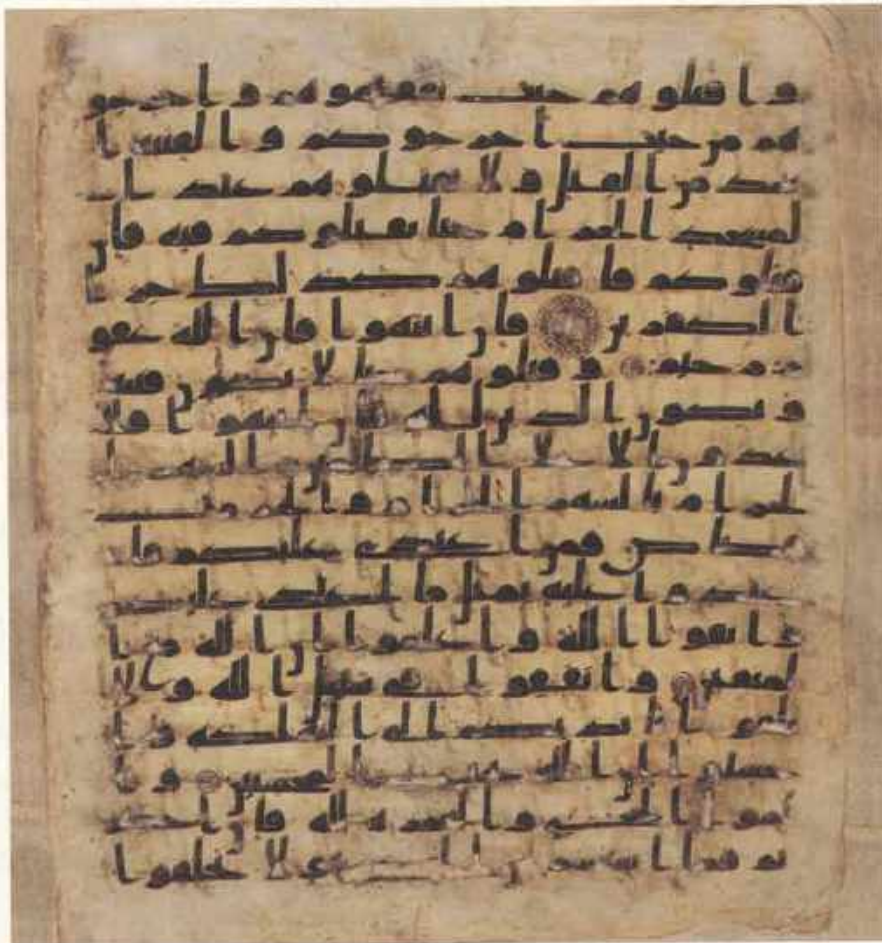 واقتلوهم حيث ثقفتموهم واخرجو
هم من حيث اخرجوكم والفتنة ا
شد من القتل ولا تقتلوهم عند ا
لمسجد الحرام حتا يقتلوكم فيه فان
قتلوكم فاقتلوهم كذلك جز
ا الكفرين فان انتهوا فان الله غفو
ر رحيم وقتلوهم حتا لا تكون فتنة
ويكون الدين لله فان انتهوا فلا
عدون الا علا الظلمين الشهر ا
لحرام بالشهر الحرام والحرمت
قصاص فمن اعتدى عليكم فا
عتدوا عليه بمثل ما اعتدى عليكم
و اتقوا الله واعلموا ان الله مع ا
لمتقين وانفقوا في سبيل الله ولا
تلقوا بايديكم الى التهلكة وا
حسنوا ان الله يحب المحسنين وا
تموا الحج والعمرة لله فان احصر
تم فما استيسر من الهدى ولا تحلقوا